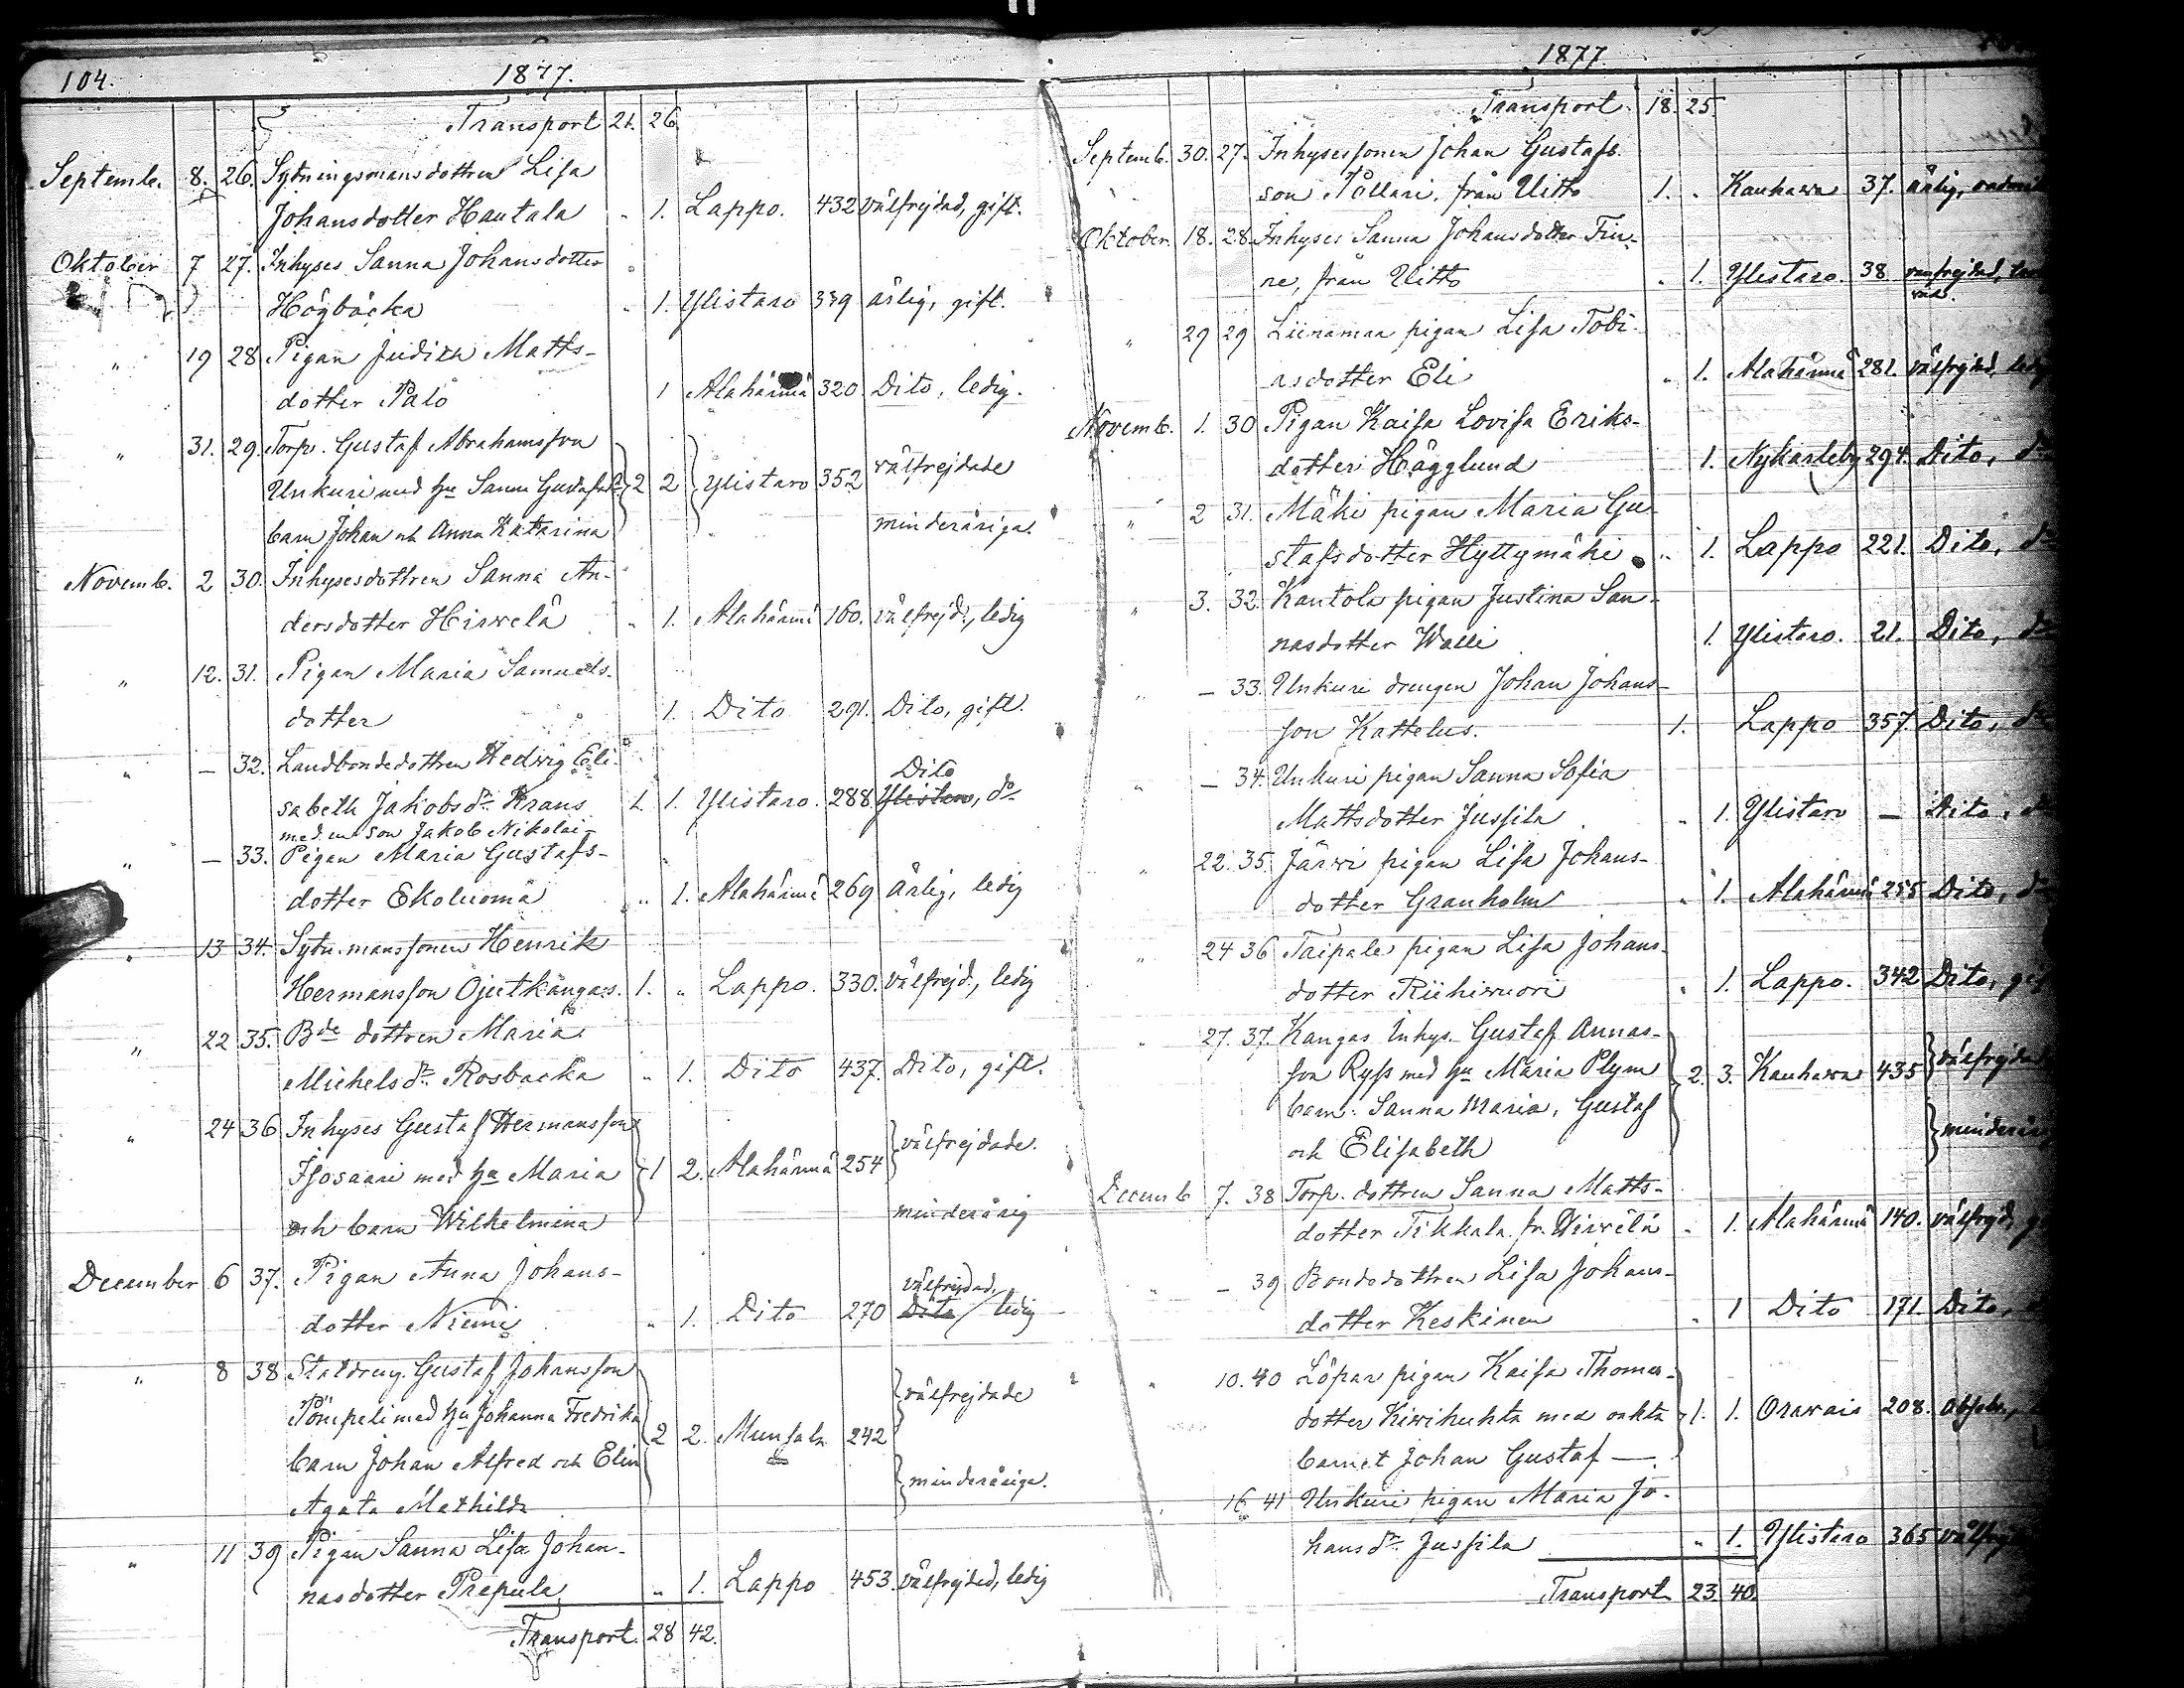 104.
1877.
Transport 21. 26.
Septemb. 8. 26. Sytningsmansdottren Lisa
Johansdotter Hautala " 1. Lappo. 432 välfrejdad, gift.
Oktober 7 27. Inhyses Sanna Johansdotter
Högbacka " 1. Ylistaro 339 ärlig, gift.
" 19 28 Pigan Judith Matts-
dotter Palo 1 Alahärmä 320. Dito, ledig.
" 31. 29. Torp. Gustaf Abrahamsson
Unkuri med hu Sanna Gustafsdr 2 2 Ylistaro 352 välfrejdade
barn Johan och Anna Katarina minderåriga.
Novemb. 2 30. Inhysesdottren Sanna An-
dersdotter Hirvelä " 1. Alahärmä 160. välfrejd., ledig
" 12. 31. Pigan Maria Samuels-
dotter 1. Dito 291. Dito, gift.
" — 32. Landbondedottren Hedvig Eli-
sabeth Jakobsdr Kraus 1. 1. Ylistaro. 288. Dito, do
med en son Jakob Nikolai-
" — 33. Pigan Maria Gustafs-
dotter Ekoluoma " 1. Alahärmä 269 ärlig, ledig
" 13 34. Sytn.manssonen Henrik
Hermansson Ojutkangas. 1. " Lappo. 330. välfrejd., ledig
" 22 35. Bde dottren Maria
Michelsdr. Rosbacka " 1. Dito 437. Dito, gift.
" 24 36 Inhyses Gustaf Hermansson
Isosaari med hu Maria 1 2. Alahärmä 254 välfrejdade.
och barn Wilhelmina minderårig
December 6 37. Pigan Anna Johans-
dotter Niemi " 1. Dito 270 välfrejdad, ledig
" 8 38 Statdreng. Gustaf Johansson
Pömpeli med hu Johanna Fredrika 2 2. Munsala 242 välfrejdade
barn Johan Alfred och Elin minderåriga.
Agata Mathilda
" 11 39 Pigan Sanna Lisa Johan-
nasdotter Prepula " 1. Lappo 453. välfrejdad, ledig
Transport. 28 42.
1877.
Transport. 18. 25.
Septemb. 30. 27. Inhysessonen Johan Gustafs-
son Pollari, från Uitto 1. " Kauhava 37. ärlig,
Oktober. 18. 28. Inhyses Sanna Johansdotter Fin-
ne, från Uitto " 1. Ylistaro. 38.
" 29 29 Liinamaa pigan Lisa Tobi-
asdotter Eli " 1. Alahärmä 281. välfrejdad,
Novemb. 1. 30 Pigan Kaisa Lovisa Eriks-
dotter Hägglund 1. Nykarleby 294. Dito,
" 2 31. Mäki pigan Maria Gu-
stafsdotter Hyttymäki " 1. Lappo 221. Dito,
" 3. 32. Kantola pigan Justina San-
nasdotter Walli 1. Ylistaro. 21. Dito,
" — 33. Unkuri drengen Johan Johans-
son Kattelus. 1. Lappo 357. Dito,
" — 34. Unkuri pigan Sanna Sofia
Mattsdotter Jussila " 1. Ylistaro — Dito,
" 22. 35. Järvi pigan Lisa Johans-
dotter Granholm " 1. Alahärmä 255 Dito,
" 24 36 Taipale pigan Lisa Johans-
dotter Riihivuori " 1. Lappo. 342 Dito,
" 27. 37. Kangas Inhys. Gustaf Annas-
son Ryss med hu Maria Plym 2. 3. Kauhava 435
barn: Sanna Maria, Gustaf
och Elisabeth
Decemb 7. 38 Torp. dottren Sanna Matts-
dotter Tikkala fr. Hirvelä " 1. Alahärmä 140.
" — 39 Bondedottren Lisa Johans-
dotter Keskinen " 1 Dito 171. Dito,
" 10. 40 Löpar pigan Kaisa Thomas-
dotter Kivihuhta med oäkta 1. 1. Oravais 208.
barnet Johan Gustaf —
16 41 Unkuri pigan Maria Jo-
hansdr. Jussila " 1. Ylistaro 365
Transport 23. 40.